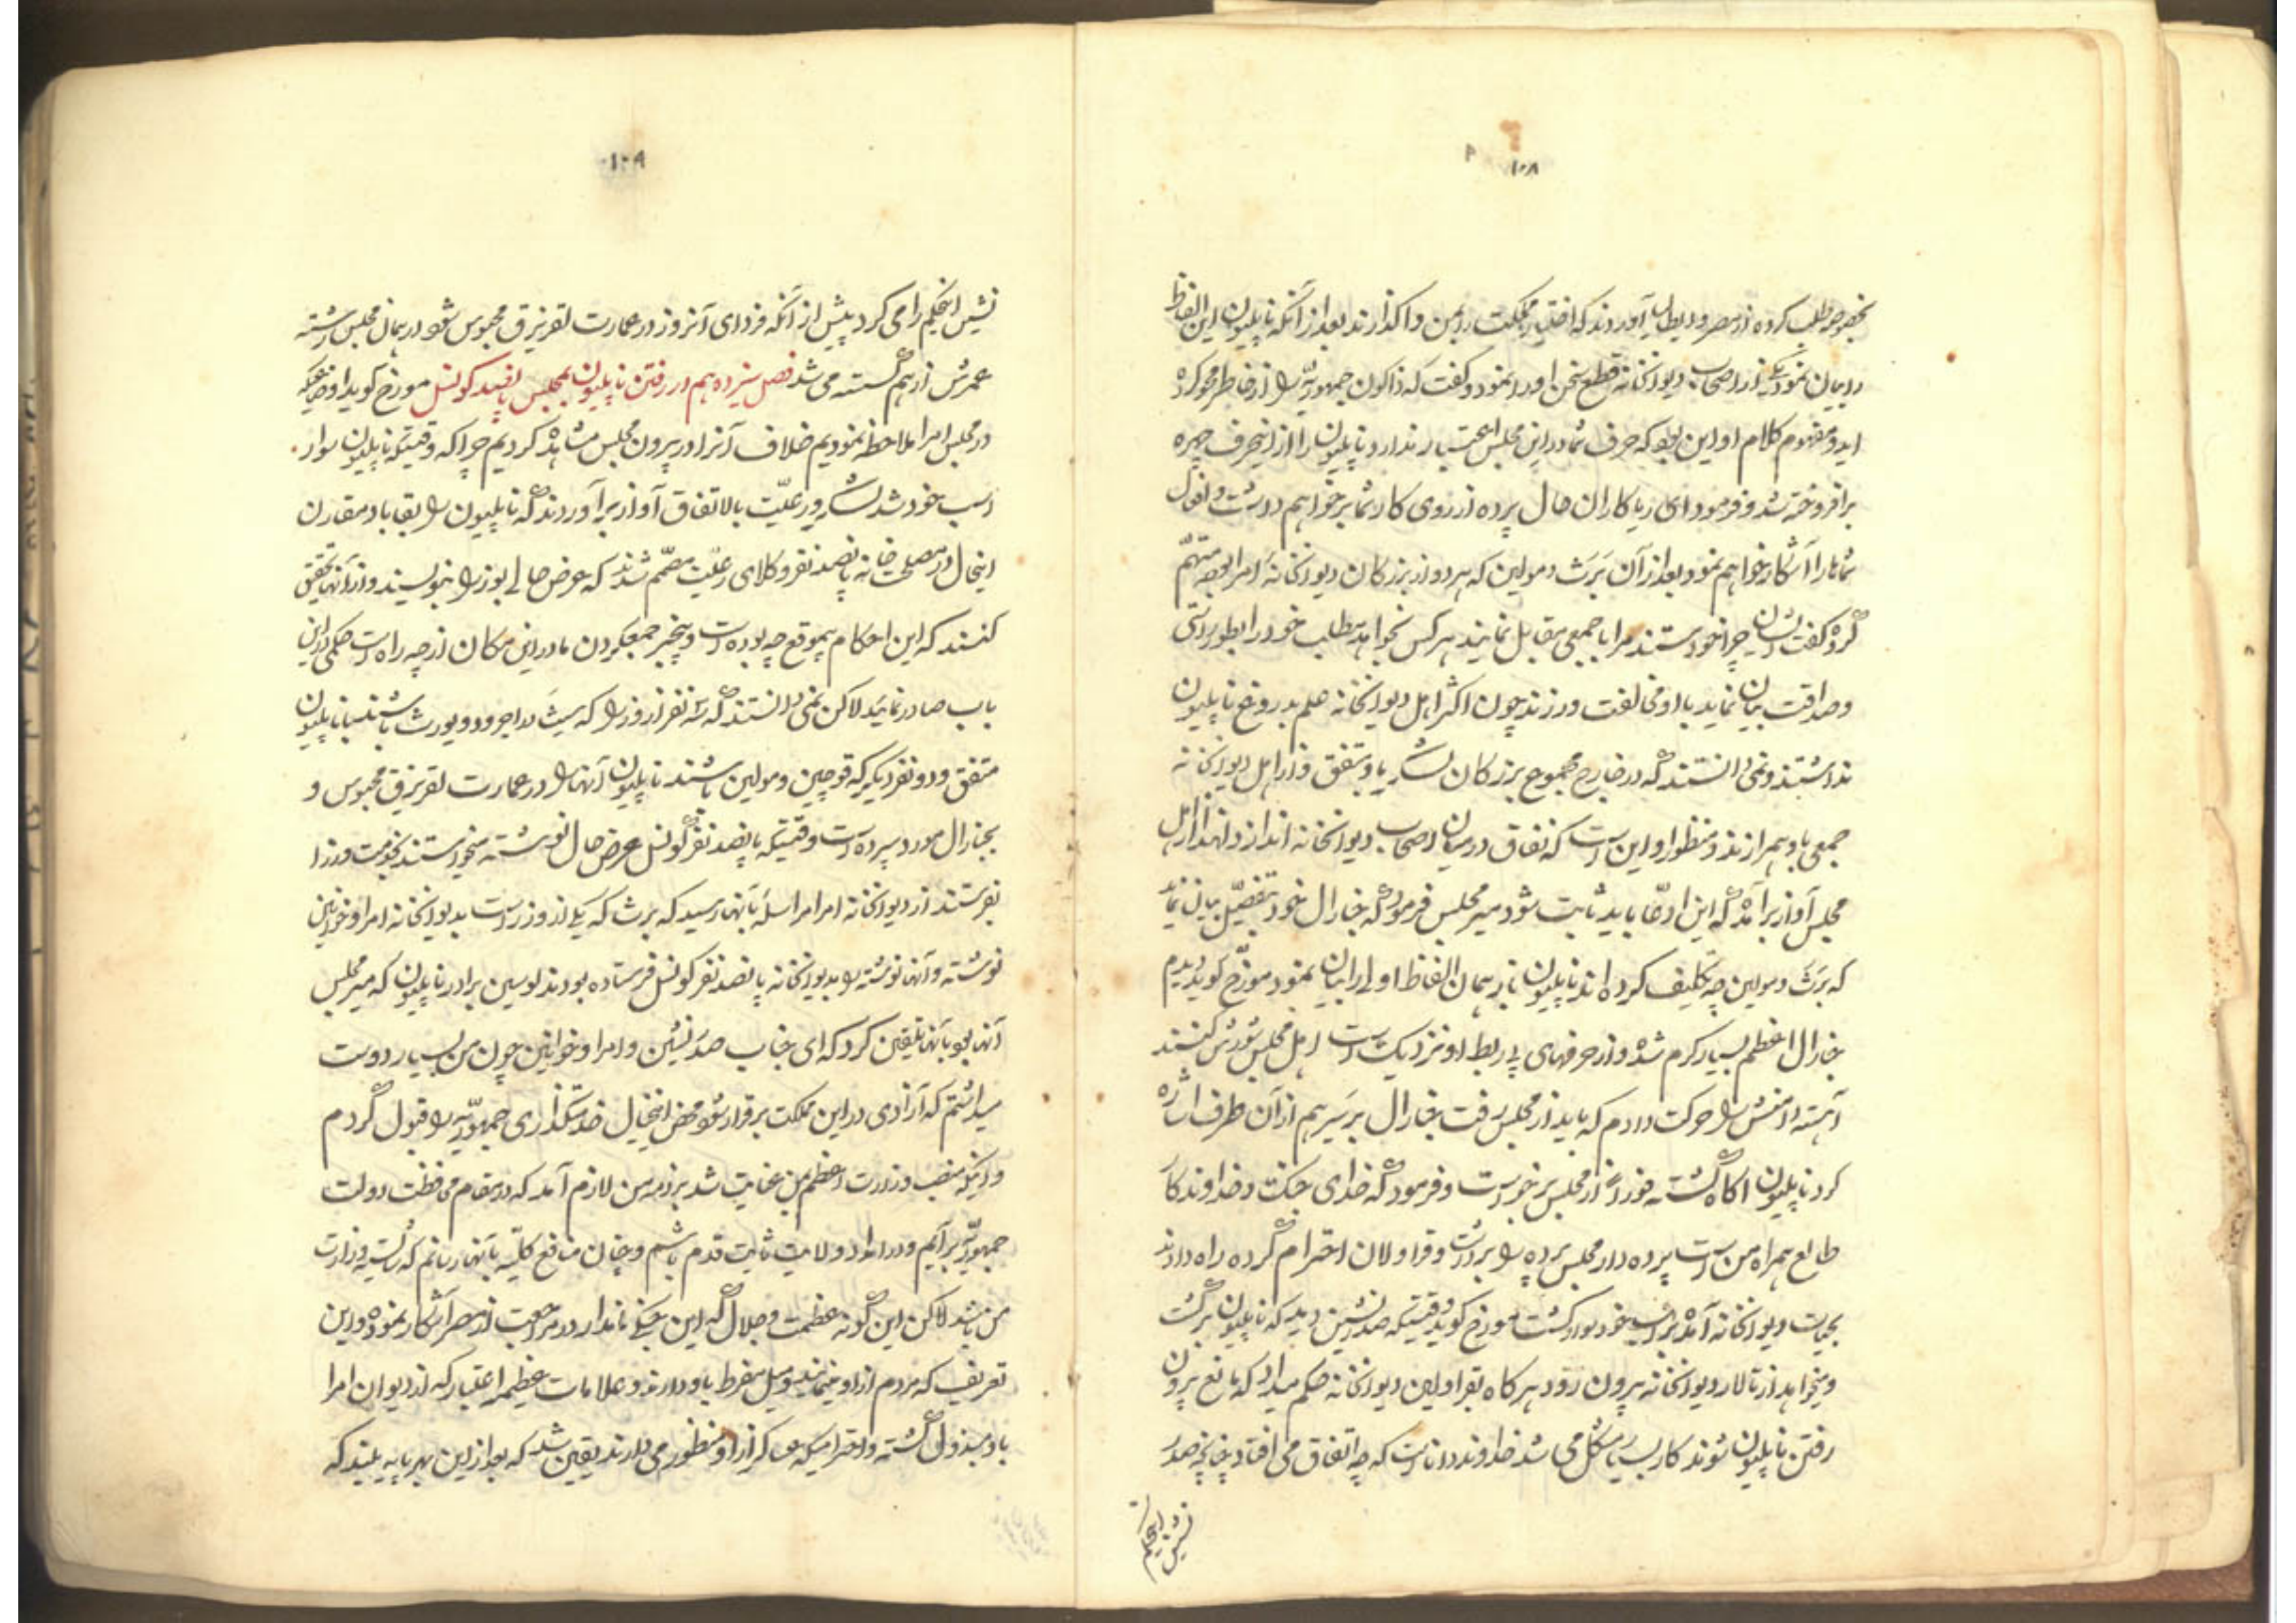 ۱۰۸
بخصوصه طلب کرده از مصر و ایطالیا آوردند که اختیار مملکت را بمن واگذارند بعد از آنکه ناپلیون این الفاظ
را بیان نمود یکی از اصحاب دیوانخانه قطع سخن او را نمود و گفت که تا کون جمهوریّه را از خاطر محو کرده
اید و مفهوم کلام او این بود که حرف شما در این مجلس اعتبار ندارد ناپلیون را از اینحرف چهره
برافروخته شد و فرمود ای ریاکاران حال پرده از روی کار شما برخواهم داشت و افعال
شماها را آشکار خواهم نمود بعد از آن بَرَث و مولین که هر دو از بزرگان دیوانخانه امرا بوده متهّم
کرده گفت ایشان میخواستند مرا با جمعی مقابل نمایند هر کس بخواهد مطلب خود را بطور راستی
و صداقت بیان نماید با او مخالفت ورزند چون اکثر اهل دیوانخانه علم بدروغ ناپلیون
نداشتند و نمی دانستند که در خارج مجموع بزرگان لشکر با او متفق و از اهل دیوانخانه
جمعی با او همرازند و منظور او این است که نفاق در میان اصحاب دیوانخانه اندازد لهذا از اهل
مجلس آواز برآمد که این ادعّا باید ثابت شود میر مجلس فرمود که جنارال خود بتفصیل بیان نماید
که بَرَث و مولین چه تکلیف کرده اند ناپلیون باز همان الفاظ اولی را بیان نمود مورّخ گوید دیدم
جنارال اعظم بسیار گرم شده و از حرفهای بی ربط او نزدیک است اهل مجلس شورش کنند
آهسته دامنش را حرکت دادم که باید از مجلس رفت جنارال برسیر هم از آن طرف اشاره
کرد ناپلیون آگاه گشته فوراً از مجلس برخواست و فرمود که خدای جنگ و خداوند کار
طالع همراه من است پرده دار مجلس پرده را برداشت و قراولان احترام کرده راه دادند
بحیات دیوانخانه آمده بر اسب خود سوار گشت مورخ گوید وقتیکه صدرنشین دید که ناپلیون برگشت
و میخواهد از تالار دیوانخانه بیرون رود هر گاه بقراولان دیوانخانه حکم میداد که مانع بیرون
رفتن ناپلیون شوند کار بسیار مشکل می شد خداوند دانا است که چه اتفاق می افتاد چنانچه صدر
نشین اینحکم
۱۰۹
نشین اینحکم را می کرد پیش از آنکه فردای آنروز در عمارت لقزنبرق محبوس شود در همان مجلس رشته
عمرش از هم گسسته می شد فصل سیزدهم در رفتن ناپلیون بمجلس پانصد کونسل مورخ گوید اوضاعیکه
در مجلس امرا ملاحظه نمودیم خلاف آنرا در بیرون مجلس مشاهده کردیم چرا که وقتیکه ناپلیون سوار
اسب خود شد لشکر و رعیّت بالاتفاق آواز برآوردند که ناپلیون را بقا باد مقارن
اینحال در مصلحت خانه پانصد نفر وکلای رعیّت مصّمم شدند که عرض حالی بوزرا بنویسند و از آنها تحقیق
کنند که این احکام بیموقع چه بوده است و بیخبر جمعکردن ما در این مکان از چه راه است حکمی در این
باب صادر نمایند لاکن نمی دانستند که سه نفر از وزرا که سیث و راجردود و یورث باشند با ناپلیون
متفق و دو نفر دیگر که قوچین و مولین باشند ناپلیون آنها را در عمارت لقزنبرق محبوس و
بجنارال مورد سپرده است وقتیکه پانصد نفر کونسل عرض حال نوشته میخواستند بخدمت وزرا
بفرستند از دیوانخانه امرا مراسله بآنها رسید که برث که یکی از وزراست بدیوانخانه امرا و خوانین
نوشته و آنها نوشته را بدیوانخانه پانصد نفر کونسل فرستاده بودند لوسین برادر ناپلیون که میر مجلس
آنها بود بآنها تلقین کرد که ای جناب صدرنشین و امرا و خوانین چون من بسیار دوست
میداشتم که آزادی در این مملکت برقرار شود محض اینخیال خدمتگذاری جمهوریّه را قبول کردم
و اینکه منصب وزارت اعظم بمن عنایت شد بر ذمه من لازم آمد که در مقام محافظت دولت
جمهوریّه برآیم و در امداد ولایت ثابت قدم باشم و چنان منافع کلیّه بآنها رسانم که شایسته وزارت
من باشد لاکن این گونه عظمت و جلال که این جنگی نامدار در مراجعت از مصر آشکار نموده و این
تعریف که مردم از او مینمایند و میل مفرط باو دارند و علامات عظیمه اعتبار که از دیوان امرا
باو مبذول گشته و احترامیکه هر کس از او منظور می دارند یقین شد که بعد از این بهر پایه بلند که